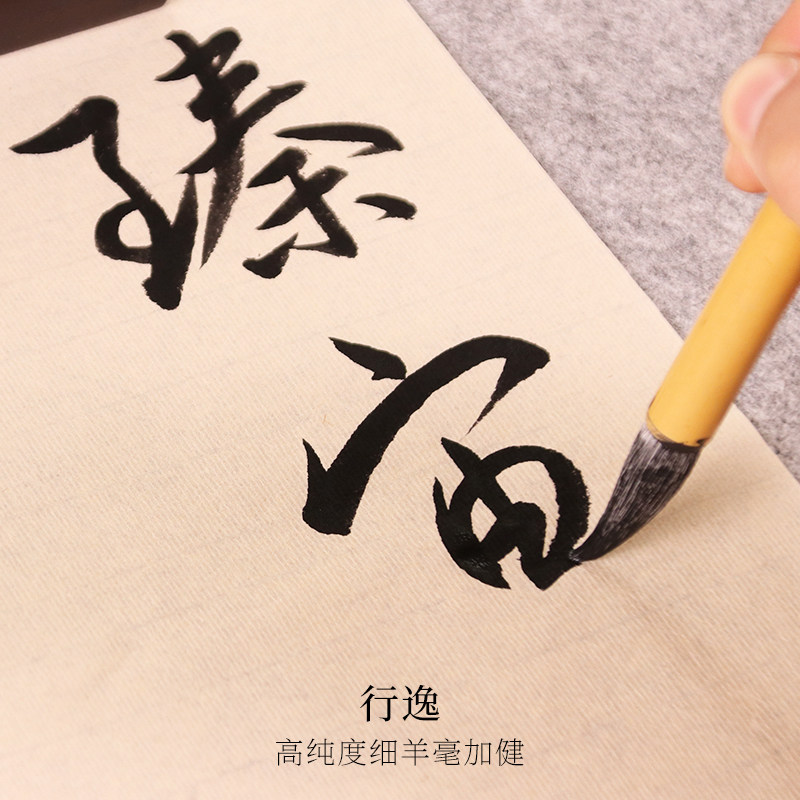 臻
行逸
高纯度细羊毫加健